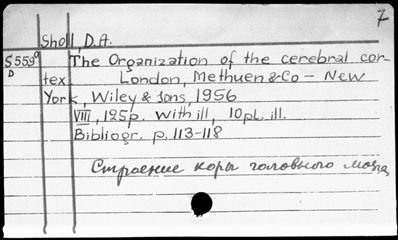 7
Sholl, D.A.
S559 The Organization of the cerebral cor-
D
tex London, Methuen & Co - New
York, Wiley & Sons, 1956
VIII, 125p. With ill, 10pl. ill.
Bibliogr. p. 113-118
Строение коры головного мозга